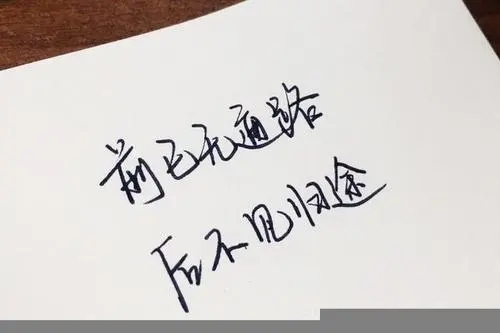 前已无通路
后不见归途